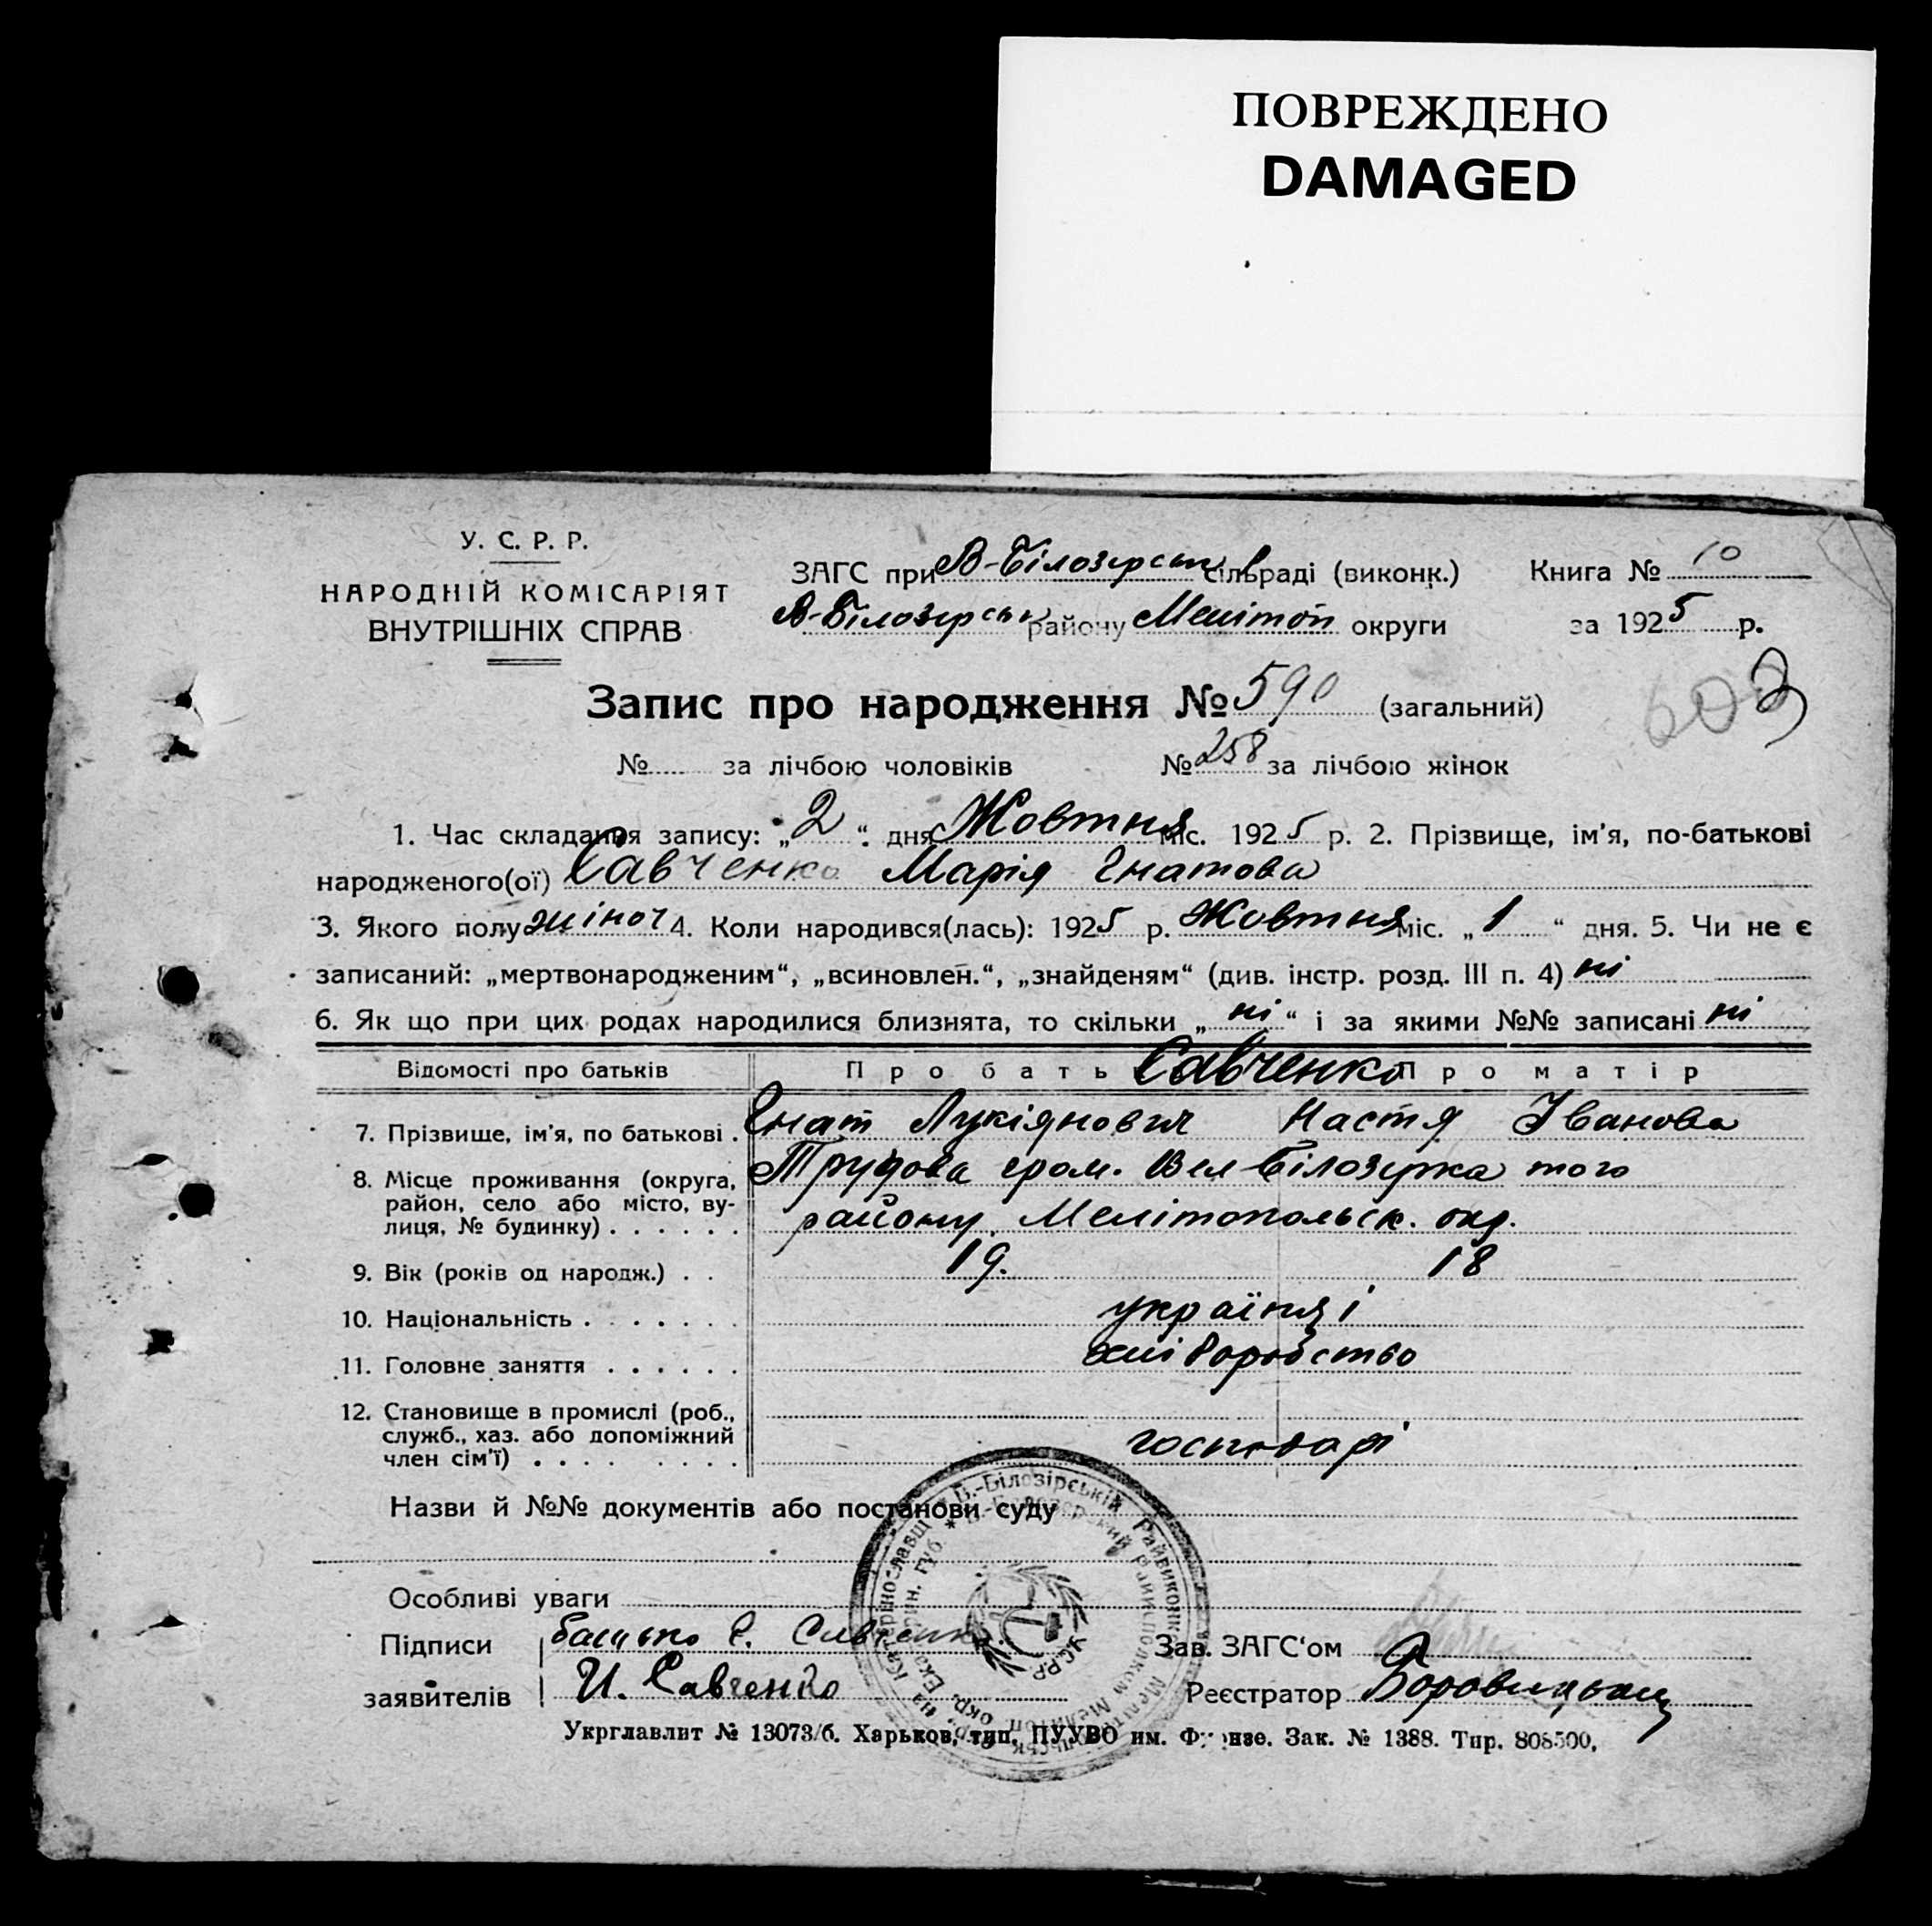 ПОВРЕЖДЕНО
DAMAGED
У. С. Р. Р.
НАРОДНІЙ КОМІСАРІЯТ
ВНУТРІШНІХ СПРАВ
ЗАГС при В-Білозерськ сільраді (виконк.) Книга № 10
В-Білозерськ району Мелітоп округи за 1925 р.
Запис про народження № 590 (загальний)
603
№ за лічбою чоловіків № 258 за лічбою жінок
1. Час складання запису: „2“ дня Жовтня міс. 1925 р. 2. Прізвище, ім'я, по-батькові
народженого(ої) Савченко Марія Гнатова
3. Якого полу жіноч 4. Коли народився(лась): 1925 р. Жовтня міс. „1“ дня. 5. Чи не є
записаний: „мертвонародженим“, „всиновлен.“, „знайденям“ (див. інстр. розд. III п. 4) ні
6. Як що при цих родах народилися близнята, то скільки „ні“ і за якими №№ записані ні
Відомості про батьків Про бать Савченко Про матір
7. Прізвище, ім'я, по батькові . Гнат Лукіянович Настя Іванова
8. Місце проживання (округа, Трудова гром. Вел Білозерка того
район, село або місто, ву-
лиця, № будинку) . . . . . . району Мелітопольськ. окр.
9. Вік (років од народж.) . . 19. 18
10. Національність . . . . . . . українці
11. Головне заняття . . . . . . хліборобство
12. Становище в промислі (роб.,
служб., хаз. або допоміжний
член сім'ї) . . . . . . . . господарі
Назви й №№ документів або постанови суду
Особливі уваги
Підписи батько Савченко Зав. ЗАГС'ом
заявителів И. Савченко Реєстратор
Укрглавлит № 13073/б. Харьков, тип. ПУУВО им. Фрунзе. Зак. № 1388. Тир. 808500.
В.-Білозірській Райвиконком
У.С.Р.Р.